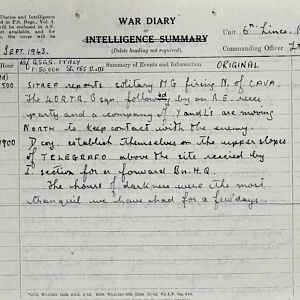 Diaries and Intelligence
d in F.S. Regs., Vol. I
will be enclosed in A.F.
for this, the cover will be
WAR DIARY
or
INTELLIGENCE SUMMARY
(Delete heading not required).
Unit 6th Lincs.
Commanding Officer
SEPT. 1943.
Ref GSGS. ITALY
1:50,000 Sh.
Summary of Events and Information
ORIGINAL
500
SITREP reports solitary MG firing N. of CAVA.
The 40 R.T.R. B sqn. followed by an R.E. recce
party and a company of Y and L's are moving
NORTH to keep contact with the enemy.
1900
D coy. establish themselves on the upper slopes
of TELEGRAFO above the site recced by
I section for a forward Bn. H.Q.
The hours of darkness were the most
tranquil we have had for a few days.